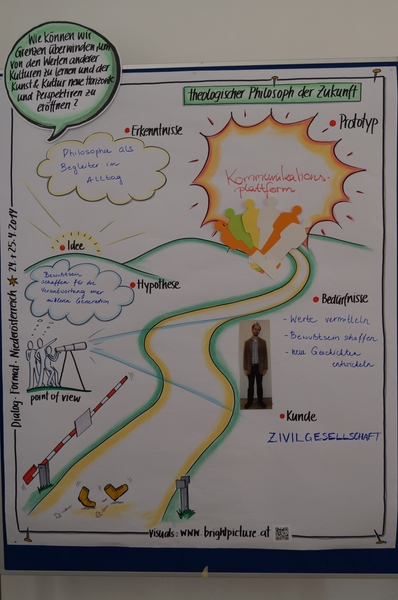 Wie können wir
Grenzen überwinden, um
von den Werten anderer
Kulturen zu lernen und der
Kunst & Kultur neue Horizonte
und Perspektiven zu
eröffnen?
theologischer Philosoph der Zukunft
Erkenntnisse
Prototyp
Philosophie als
Begleiter im
Alltag
Kommunikations-
plattform
Idee
Hypothese
Bewusstsein
schaffen für die
Verantwortung
Generation
Bedürfnisse
- Werte vermitteln
- Bewußtsein schaffen
- neue Geschichten
entwickeln
point of view
Kunde
ZIVILGESELLSCHAFT
Dialog · Formal · Niederösterreich 24 + 25.4.2014
visuals: www.brightpicture.at